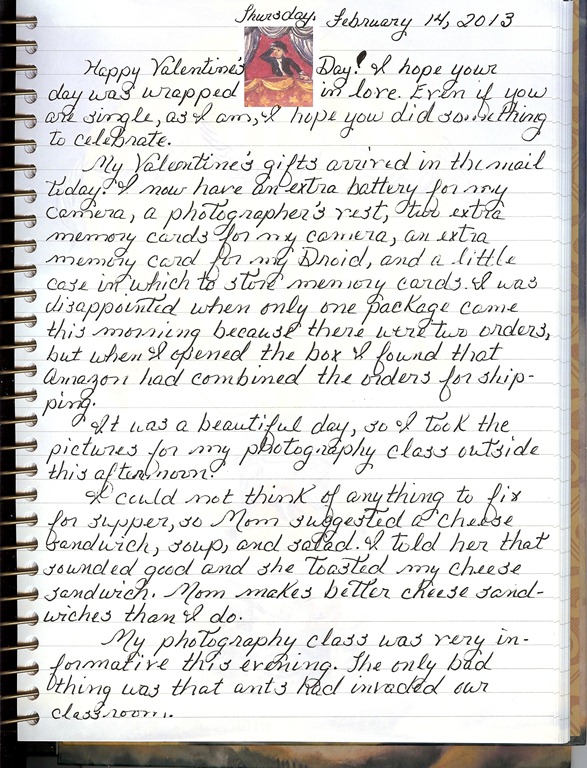 Thursday, February 14, 2013
Happy Valentine's Day! I hope your
day was wrapped in love. Even if you
are single, as I am, I hope you did something
to celebrate.
My Valentine's gifts arrived in the mail
today. I now have an extra battery for my
camera, a photographer's vest, two extra
memory cards for my camera, an extra
memory card for my Droid, and a little
case in which to store memory cards. I was
disappointed when only one package came
this morning because there were two orders,
but when I opened the box I found that
Amazon had combined the orders for ship-
ping.
It was a beautiful day, so I took the
pictures for my photography class outside
this afternoon.
I could not think of anything to fix
for supper, so Mom suggested a cheese
sandwich, soup, and salad. I told her that
sounded good and she toasted my cheese
sandwich. Mom makes better cheese sand-
wiches than I do.
My photography class was very in-
formative this evening. The only bad
thing was that ants had invaded our
classroom.